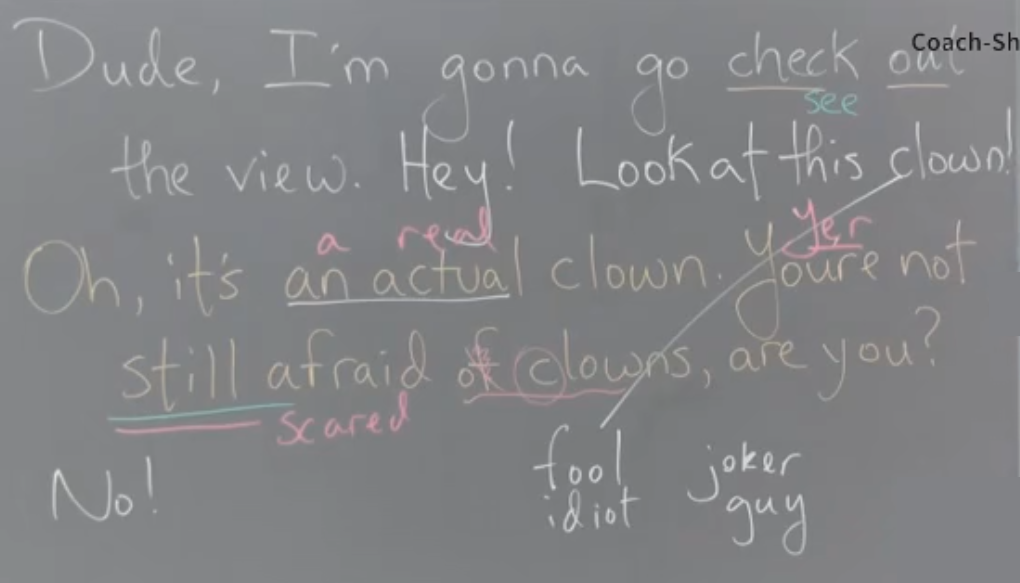 Coach-Sh
Dude, I'm gonna go check out
see
the view. Hey! Look at this clown!
a real yer
Oh, it's an actual clown. You're not
still afraid of clowns, are you?
scared
No!
fool joker
idiot guy